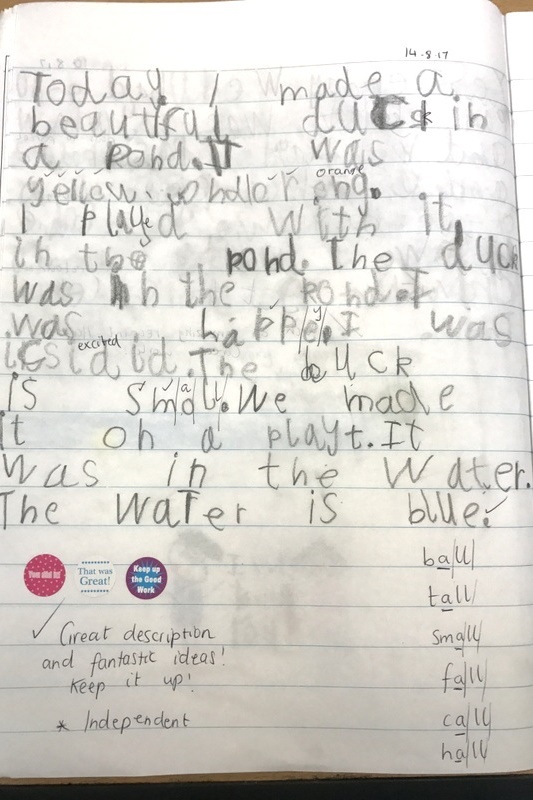 14.8.17
Today I made a
beautiful duck in
a pond. It was
orange
yellow. ondlo reng.
I played with it
in the pond. The duck
was in the pond. I
was happey. I was
excited
icsidid. The duck
is small. We made
it on a playt. It
was in the water.
The water is blue.
That was Great!
Keep up the Good Work
ball
tall
small
fall
call
hall
Great description
and fantastic ideas!
Keep it up!
* Independent